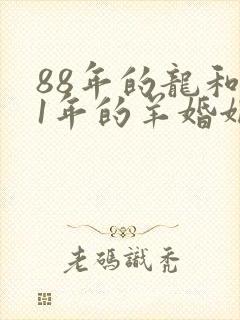 88年的龍和
1年的羊婚姻
老碼識禿